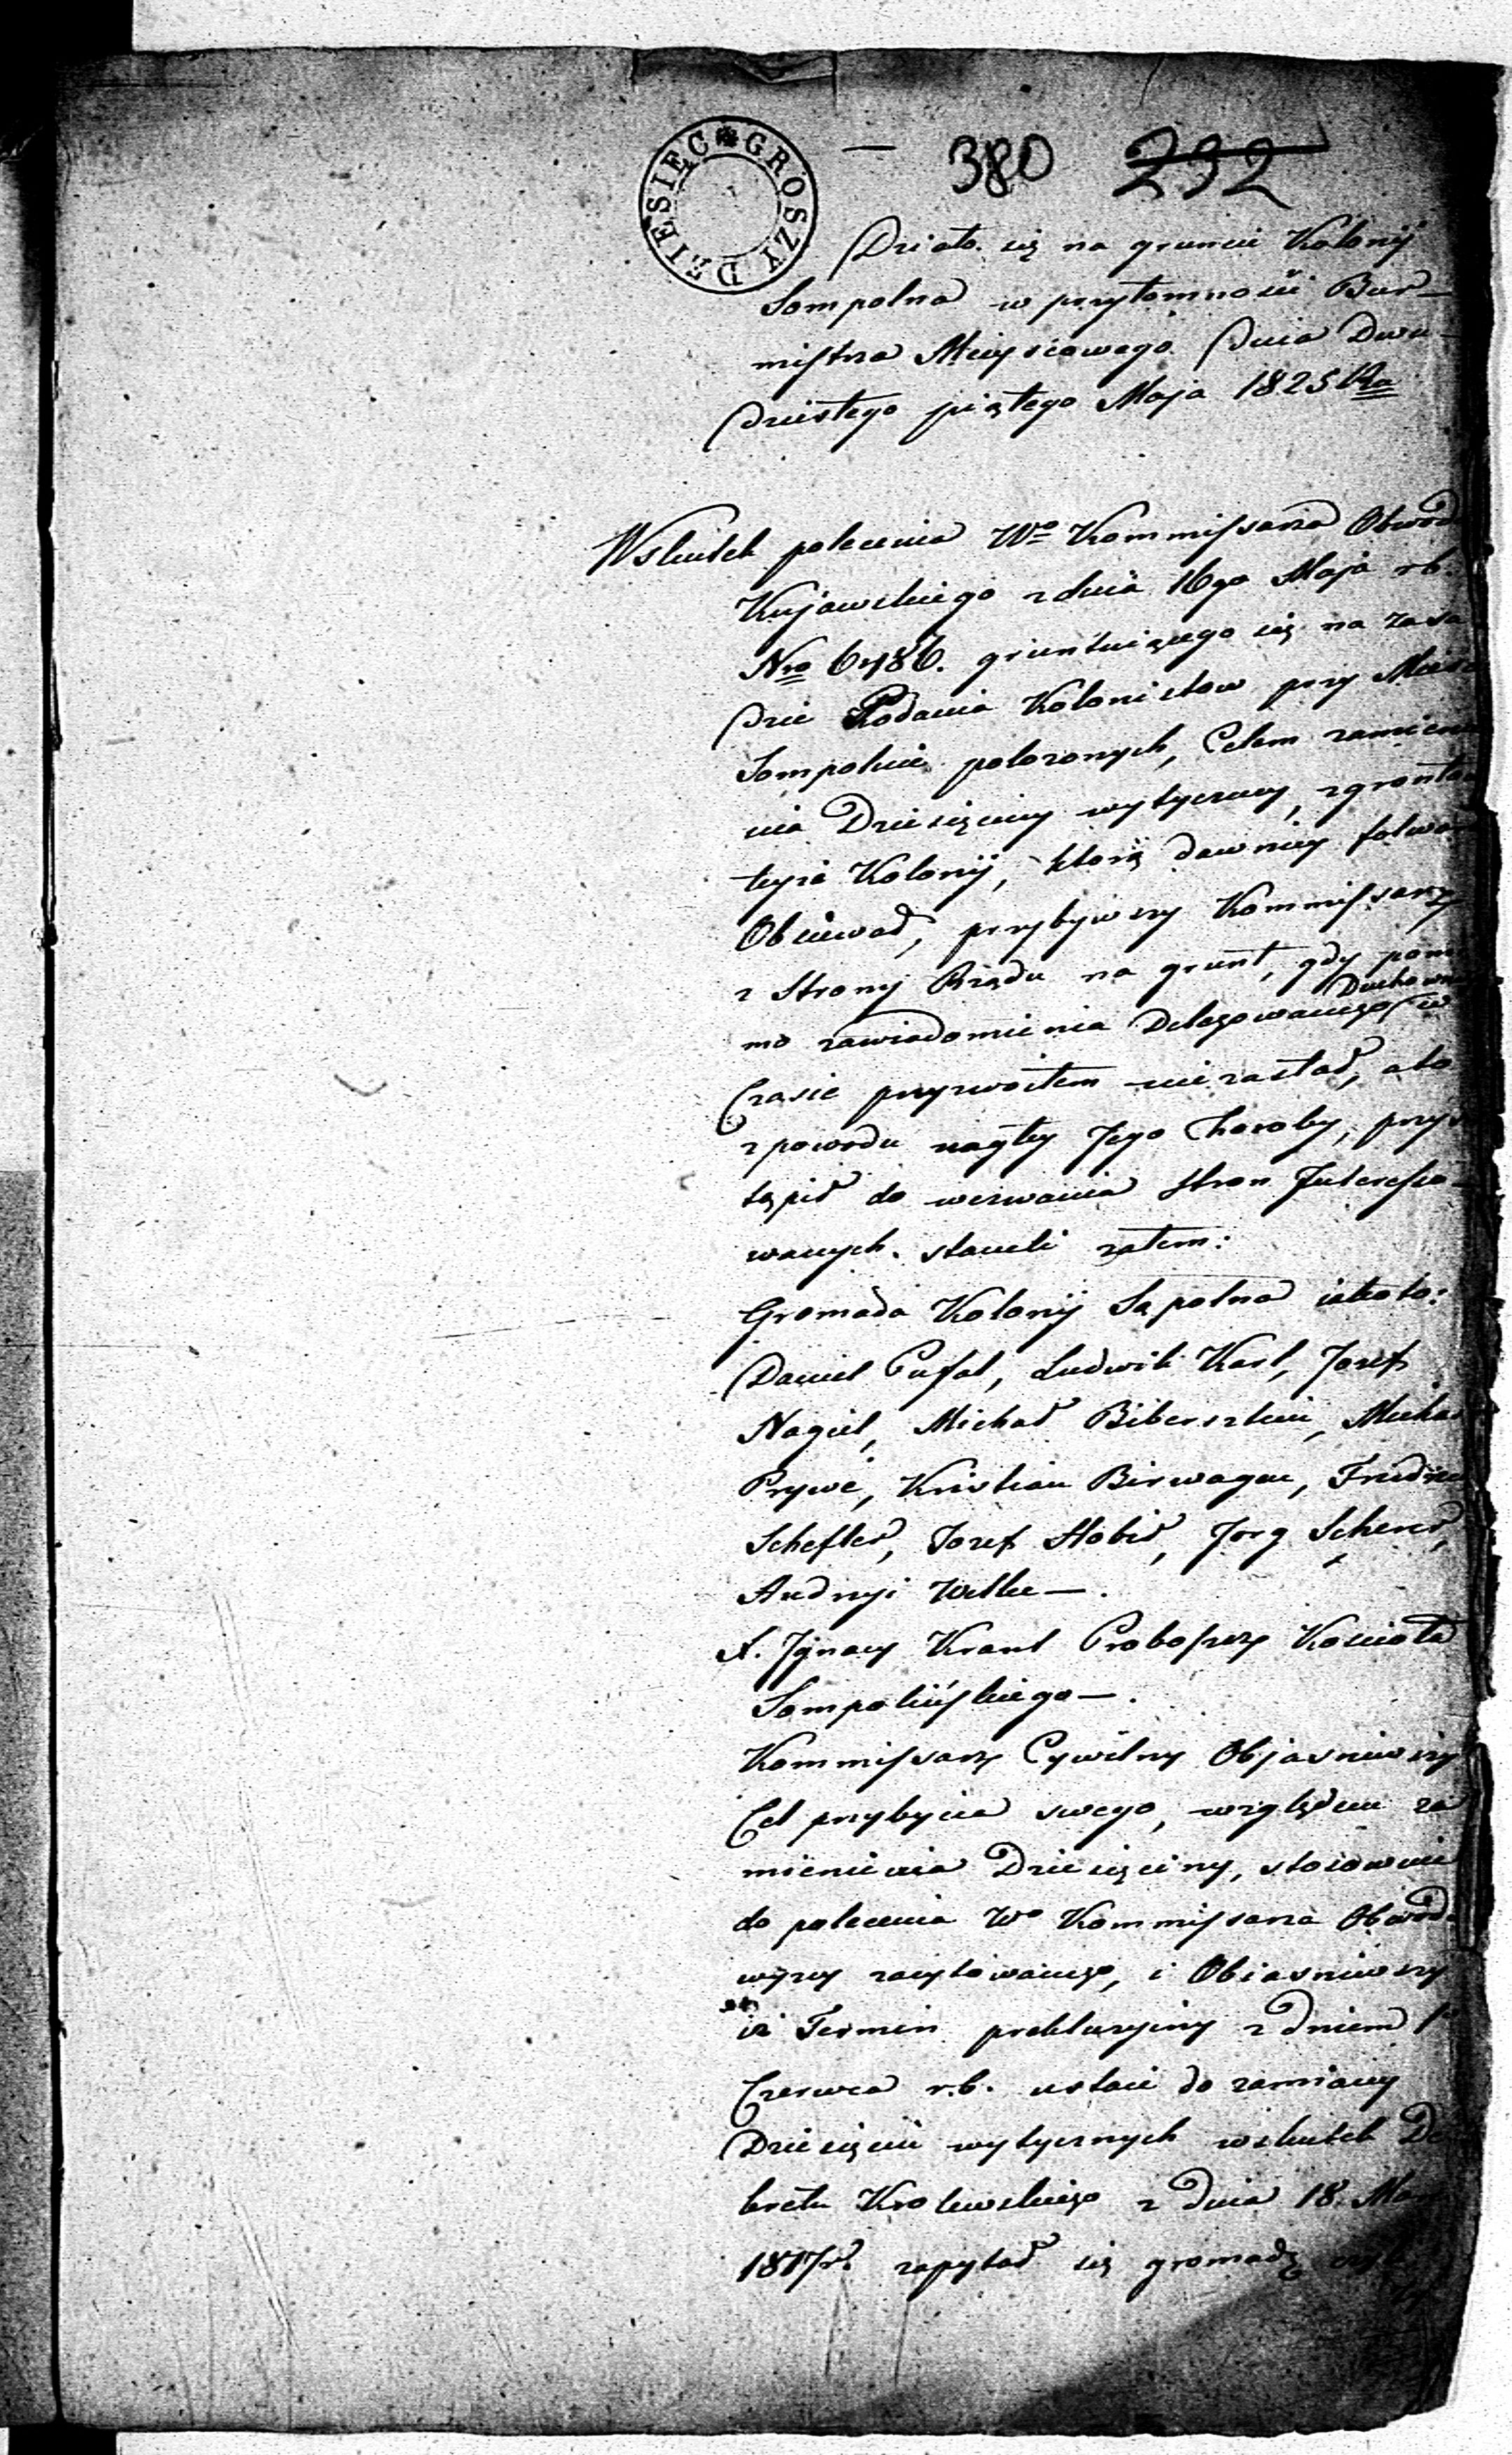 DZIESIĘC GROSZY
— 380 232
Działo się na gruncie Kolonij
Sompolna w przytomności Bur-
mistrza Mieyscowego Dnia Dwu-
dziestego piątego Maja 1825 Ro
Wskutek polecenia Wo Kommissarza Obwodu
Kujawskiego z dnia 16go Maja rb.
Nro 6486. gruntuiącego się na zasa
dzie Podania Kolonistow przy Mieście
Sompolnie położonych, Celem zamienie
nia Dziesięciny wytyczney, z gruntow
teyże Kolonij, którą dawniey folwark
Obsiewał, przybywszy Kommissarz
z Strony Rządu na grunt, gdy pomi
mo zawiadomienia Delegowanego Duchown w
Czasie przyzwoitem nie zastał, a to
z powodu nagłey Jego Choroby, przys
tąpił do wezwania Stron Interesso-
wanych. staneli zatem:
Gromada Kolonij Sąpolna iako to:
Daniel Pufal, Ludwik Karl, Jozef
Nagiel, Michał Bibersztein, Michał
Prywe, Kristian Birwagen, Fridrich
Schefler, Jozef Stobit, Jorg Scherer,
Andrzej Wilke —.
X. Ignacy Krant Proboszcz Kościoła
Sompolińskiego —.
Kommissarz Cywilny Objasniwszy
Cel przybycia swego, względem za
mienienia Dziesięciny, stosownie
do polecenia Wo Kommissarza Obwodu
wyżey zacytowanego, i Obiasniwszy
iż Termin prekluzyiny z dniem 1
Czerwca r.b. ustaie do zamiany
Dziesięcin wytycznych wskutek De
kretu Krolewskiego z dnia 18. Mar
1817r. zapytał się gromadę czyli